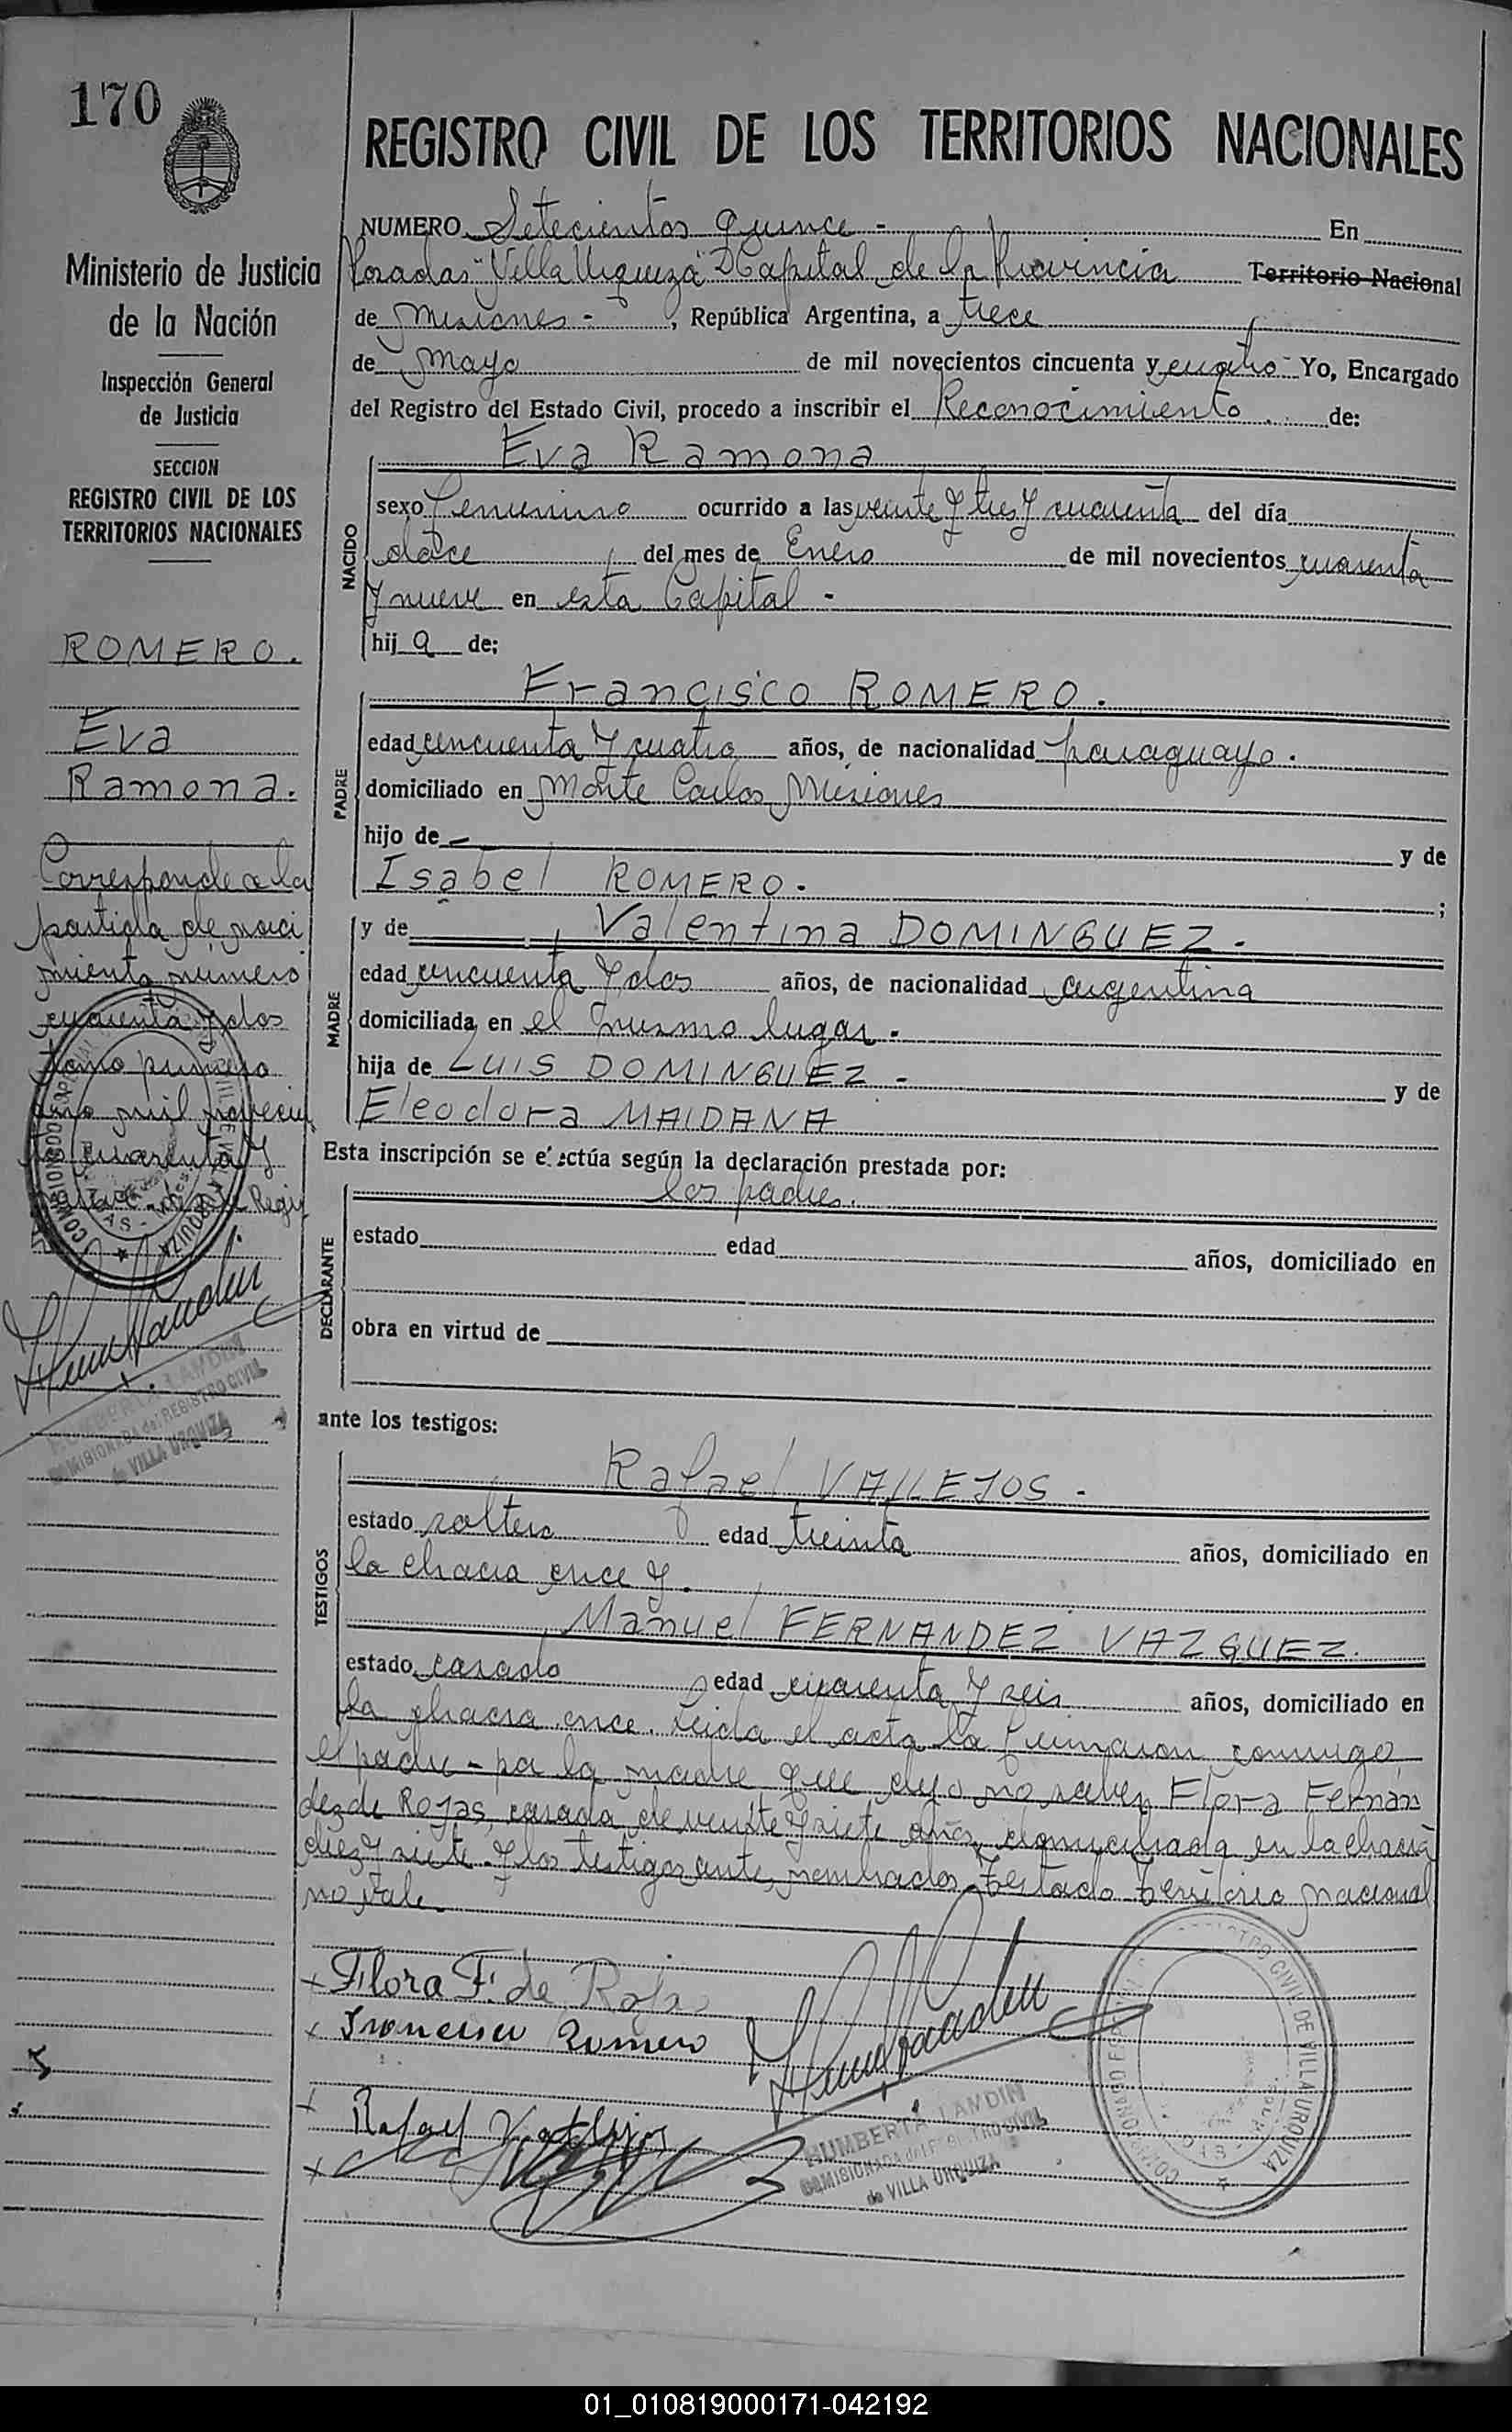 170
REGISTRO CIVIL DE LOS TERRITORIOS NACIONALES
Ministerio de Justicia
de la Nación
Inspección General
de Justicia
SECCION
REGISTRO CIVIL DE LOS
TERRITORIOS NACIONALES
ROMERO.
Eva
Ramona.
Corresponde a la
partida de naci
miento numero
cuarenta y dos
tomo primero
año mil novecien
tos cuarenta y
HUMBERTA LANDIN
COMISIONADA del REGISTRO CIVIL
de VILLA URQUIZA
NUMERO Setecientos quince - En
Posadas "Villa Urquiza" Capital de la Provincia Territorio Nacional
de Misiones - , República Argentina, a trece
de Mayo de mil novecientos cincuenta y cuatro - Yo, Encargado
del Registro del Estado Civil, procedo a inscribir el Reconocimiento de:
Eva Ramona
NACIDO
sexo femenino ocurrido a las veinte y tres y cuarenta del día
doce del mes de Enero de mil novecientos cuarenta
y nueve en esta Capital -
hij a de;
PADRE
Francisco ROMERO.
edad cincuenta y cuatro años, de nacionalidad paraguayo.
domiciliado en Monte Carlos Misiones
hijo de — y de
Isabel ROMERO. ;
MADRE
y de Valentina DOMINGUEZ.
edad cincuenta y dos años, de nacionalidad argentina
domiciliada en el mismo lugar.
hija de LUIS DOMINGUEZ - y de
Eleodora MAIDANA
Esta inscripción se efectúa según la declaración prestada por:
DECLARANTE
los padres.
estado edad años, domiciliado en
obra en virtud de
ante los testigos:
TESTIGOS
Rafael VALLEJOS.
estado soltero edad treinta años, domiciliado en
la chacra once y.
Manuel FERNANDEZ VAZQUEZ.
estado casado edad cuarenta y seis años, domiciliado en
la chacra once. Leida el acta la firmaron conmigo
el padre - por la madre que dijo no saber Flora Fernán
dez de Rojas, casada de veinte y siete años domiciliada en la chacra
diez y siete y los testigos ante, nombrados. Testado Territorio Nacional
no vale.
Flora F. de Rojas
Francisco Romero
Rafael Vallejos
HUMBERTA LANDIN
COMISIONADA del REGISTRO CIVIL
de VILLA URQUIZA
01_010819000171-042192